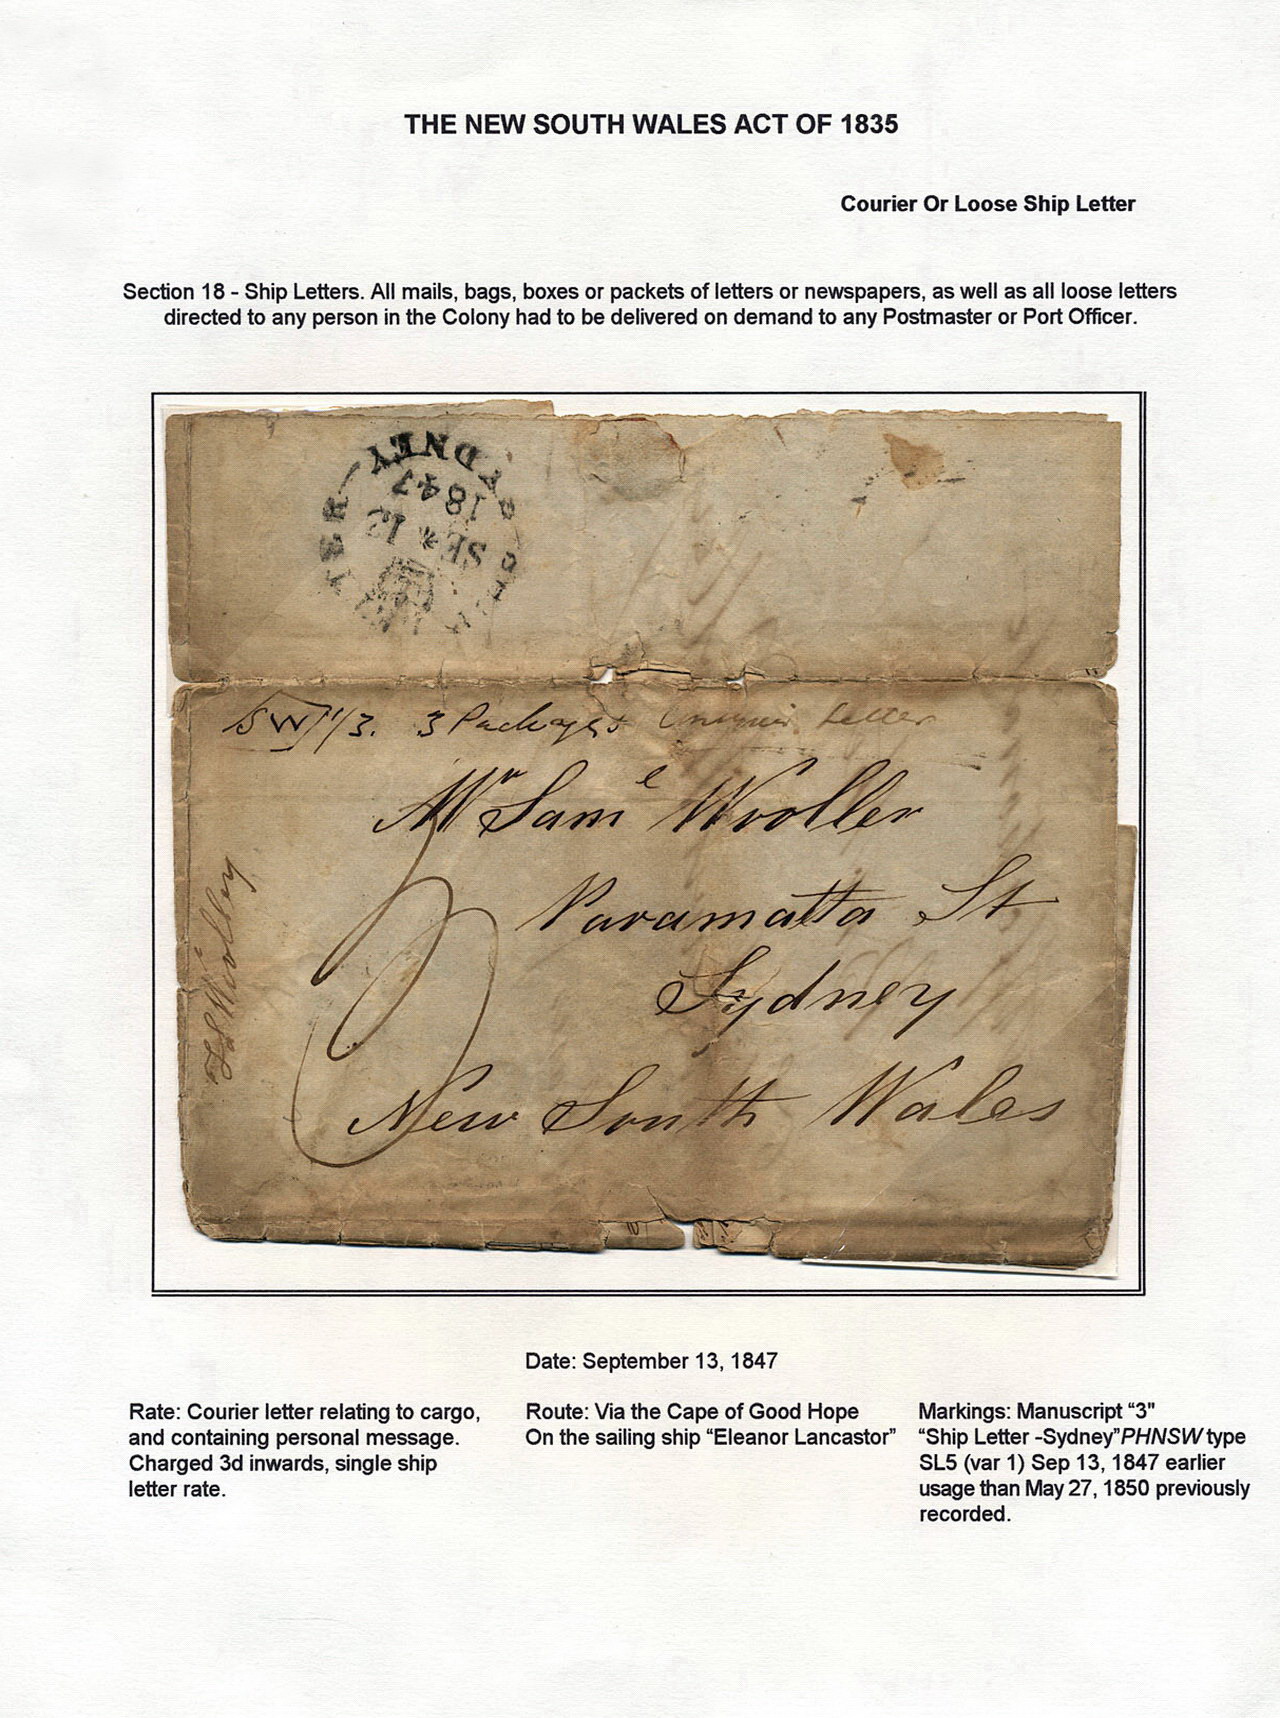 THE NEW SOUTH WALES ACT OF 1835
Courier Or Loose Ship Letter
Section 18 - Ship Letters. All mails, bags, boxes or packets of letters or newspapers, as well as all loose letters
directed to any person in the Colony had to be delivered on demand to any Postmaster or Port Officer.
SYDNEY
1847
SE * 13
SW 1/3. 3 Packages Letter
Mr Saml Wooller
Paramatta St
Sydney
New South Wales
3
Date: September 13, 1847
Rate: Courier letter relating to cargo,
and containing personal message.
Charged 3d inwards, single ship
letter rate.
Route: Via the Cape of Good Hope
On the sailing ship “Eleanor Lancastor”
Markings: Manuscript “3"
“Ship Letter -Sydney”PHNSW type
SL5 (var 1) Sep 13, 1847 earlier
usage than May 27, 1850 previously
recorded.